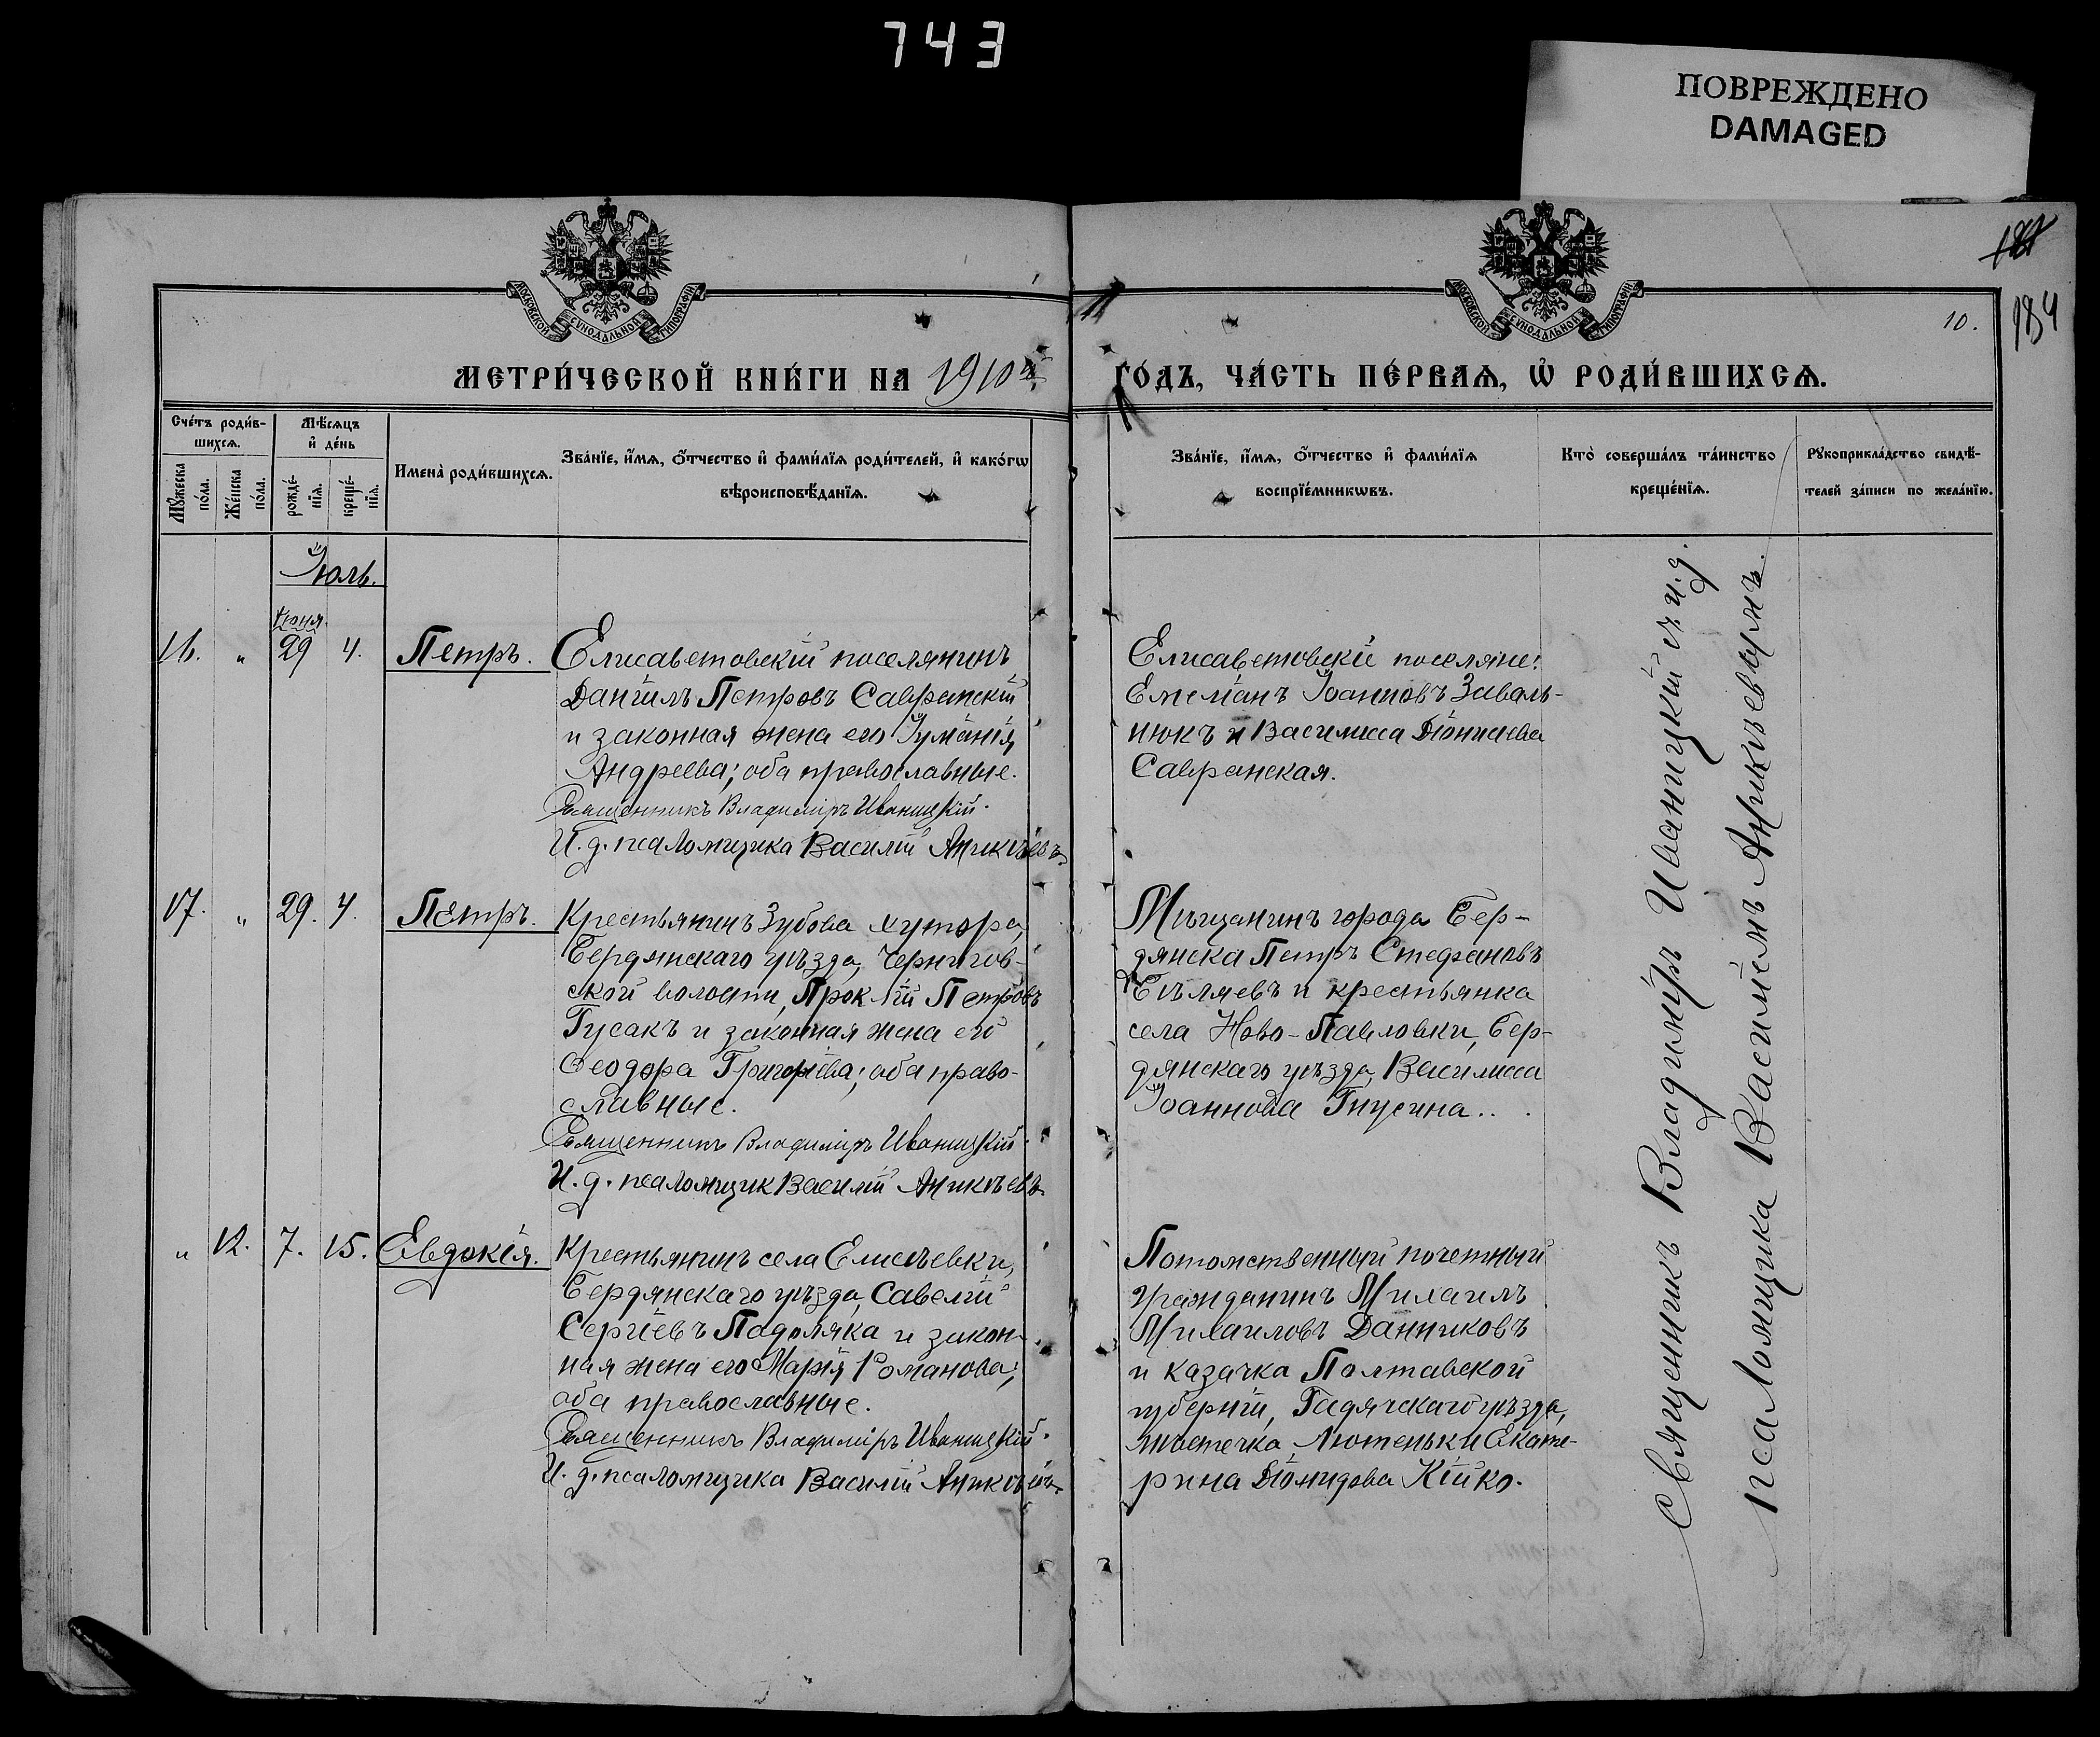 743
ПОВРЕЖДЕНО
DAMAGED
МОСКОВСКОЙ СѴНОДАЛЬНОЙ ТИПОГРАФІИ
МОСКОВСКОЙ СѴНОДАЛЬНОЙ ТИПОГРАФІИ
184
10.
МЕТРИ́ЧЕСКОЙ КНИ́ГИ НА 1910й
ГО́ДЪ, ЧА́СТЬ ПЕ́РВАѦ, Ѡ҆ РОДИ́ВШИХСѦ.
Сче́тъ роди́в-
шихсѧ.
Мꙋ́жеска по́ла.
Же́нска по́ла.
Мѣ́сѧцъ
и҆ де́нь
рожде́-
нїѧ.
креще́-
нїѧ.
Имена̀ роди́вшихсѧ.
Зва́нїе, и҆́мѧ, о҆́тчество и҆ фами́лїѧ роди́телей, и҆ како́гѡ
вѣроисповѣ́данїѧ.
Зва́нїе, и҆́мѧ, о҆́тчество и҆ фами́лїѧ
воспрїе́мникѡвъ.
Кто̀ соверша́лъ та́инство
креще́нїѧ.
Рꙋкоприкла́дство свидѣ́-
телей за́писи по жела́нїю.
Іюль.
Іюня.
16. " 29 4. Петръ.
Елисаветовскій поселянинъ
Даніилъ Петровъ Савранскій
и законная жена его Іуліанія
Андреева; оба православные.
Священникъ Владиміръ Иваницкій.
И. д. псаломщика Василій Аникѣевъ
Елисаветовскіе поселяне:
Емеліанъ Іоанновъ Заваль-
нюкъ и Василисса Діонисіева
Савранская.
17. " 29. 4. Петръ.
Крестьянинъ Зубова хутора,
Бердянскаго уѣзда, Чернигов-
ской волости, Проклій Петровъ
Гусакъ и законная жена его
Ѳеодора Григоріева; оба право-
славные.
Священникъ Владиміръ Иваницкій.
И. д. псаломщик Василій Аникѣевъ
Мѣщанинъ города Бер-
дянска Петръ Стефановъ
Бѣляевъ и крестьянка
села Ново-Павловки, Бер-
дянскаго уѣзда, Василисса
Іоаннова Гнусина...
" 12. 7. 15. Евдокія.
Крестьянинъ села Елисѣевки,
Бердянскаго уѣзда, Савелій
Сергіевъ Подоляка и закон-
ная жена его Марія Романова;
оба православные.
Священникъ Владиміръ Иваницкій.
И. д. псаломщика Василій Аникѣевъ
Потомственный почетный
гражданинъ Михаилъ
Михаиловъ Данниковъ
и казачка Полтавской
губерніи, Гадячскаго уѣзда,
мѣстечка Лютеньки Екате-
рина Діомидова Кійко.
Священникъ Владиміръ Иваницкій съ и. д.
псаломщика Василіемъ Аникѣевымъ.